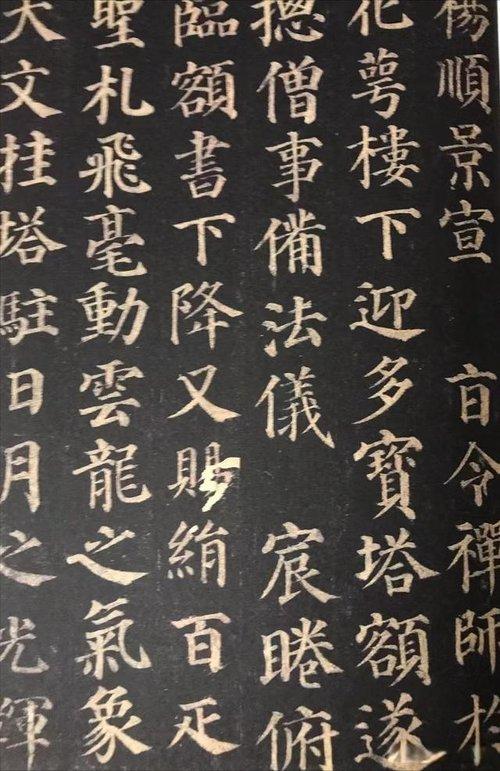 楊順景宣 旨令禪師於
花萼樓下迎多寶塔額遂
揔僧事備法儀 宸睠俯
臨額書下降又賜絹百疋
聖札飛毫動雲龍之氣象
天文挂塔駐日月之光輝